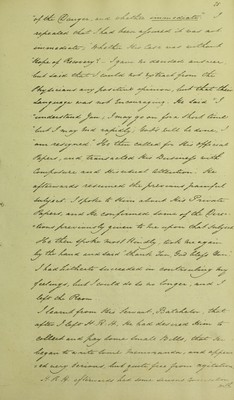 "of the Danger, and whether immediate" I
repeated that I had been assured it was not
immediate. Whether His Case was without
Hope of Recovery? - I gave no decided answer
but said that I could not extract from the
Physicians any positive opinion, but that their
Language was not Encouraging. He said "I
understand you; I may go on for a short time
but I may end rapidly; God's will be done, I
am resigned" He then called for His Official
Papers, and transacted His Business with
Composure and His usual attention. He
afterwards resumed the previous painful
Subject. I spoke to Him about His Private
Papers, and He confirmed some of the Direc-
tions previously given to me upon that subject
He then spoke most kindly, took me again
by the hand and said "Thank You. God bless You."
I had hitherto succeeded in controuling my
feelings, but I could do so no longer, and I
left the Room.
I learnt from His Servant, Batchelor, that
after I left H. R. H. He had desired Him to
collect and pay some Small Bills, that He
began to write some Memoranda, and appear-
ed very serious but quite free from agitation
H. R. H. afterwards had some
with